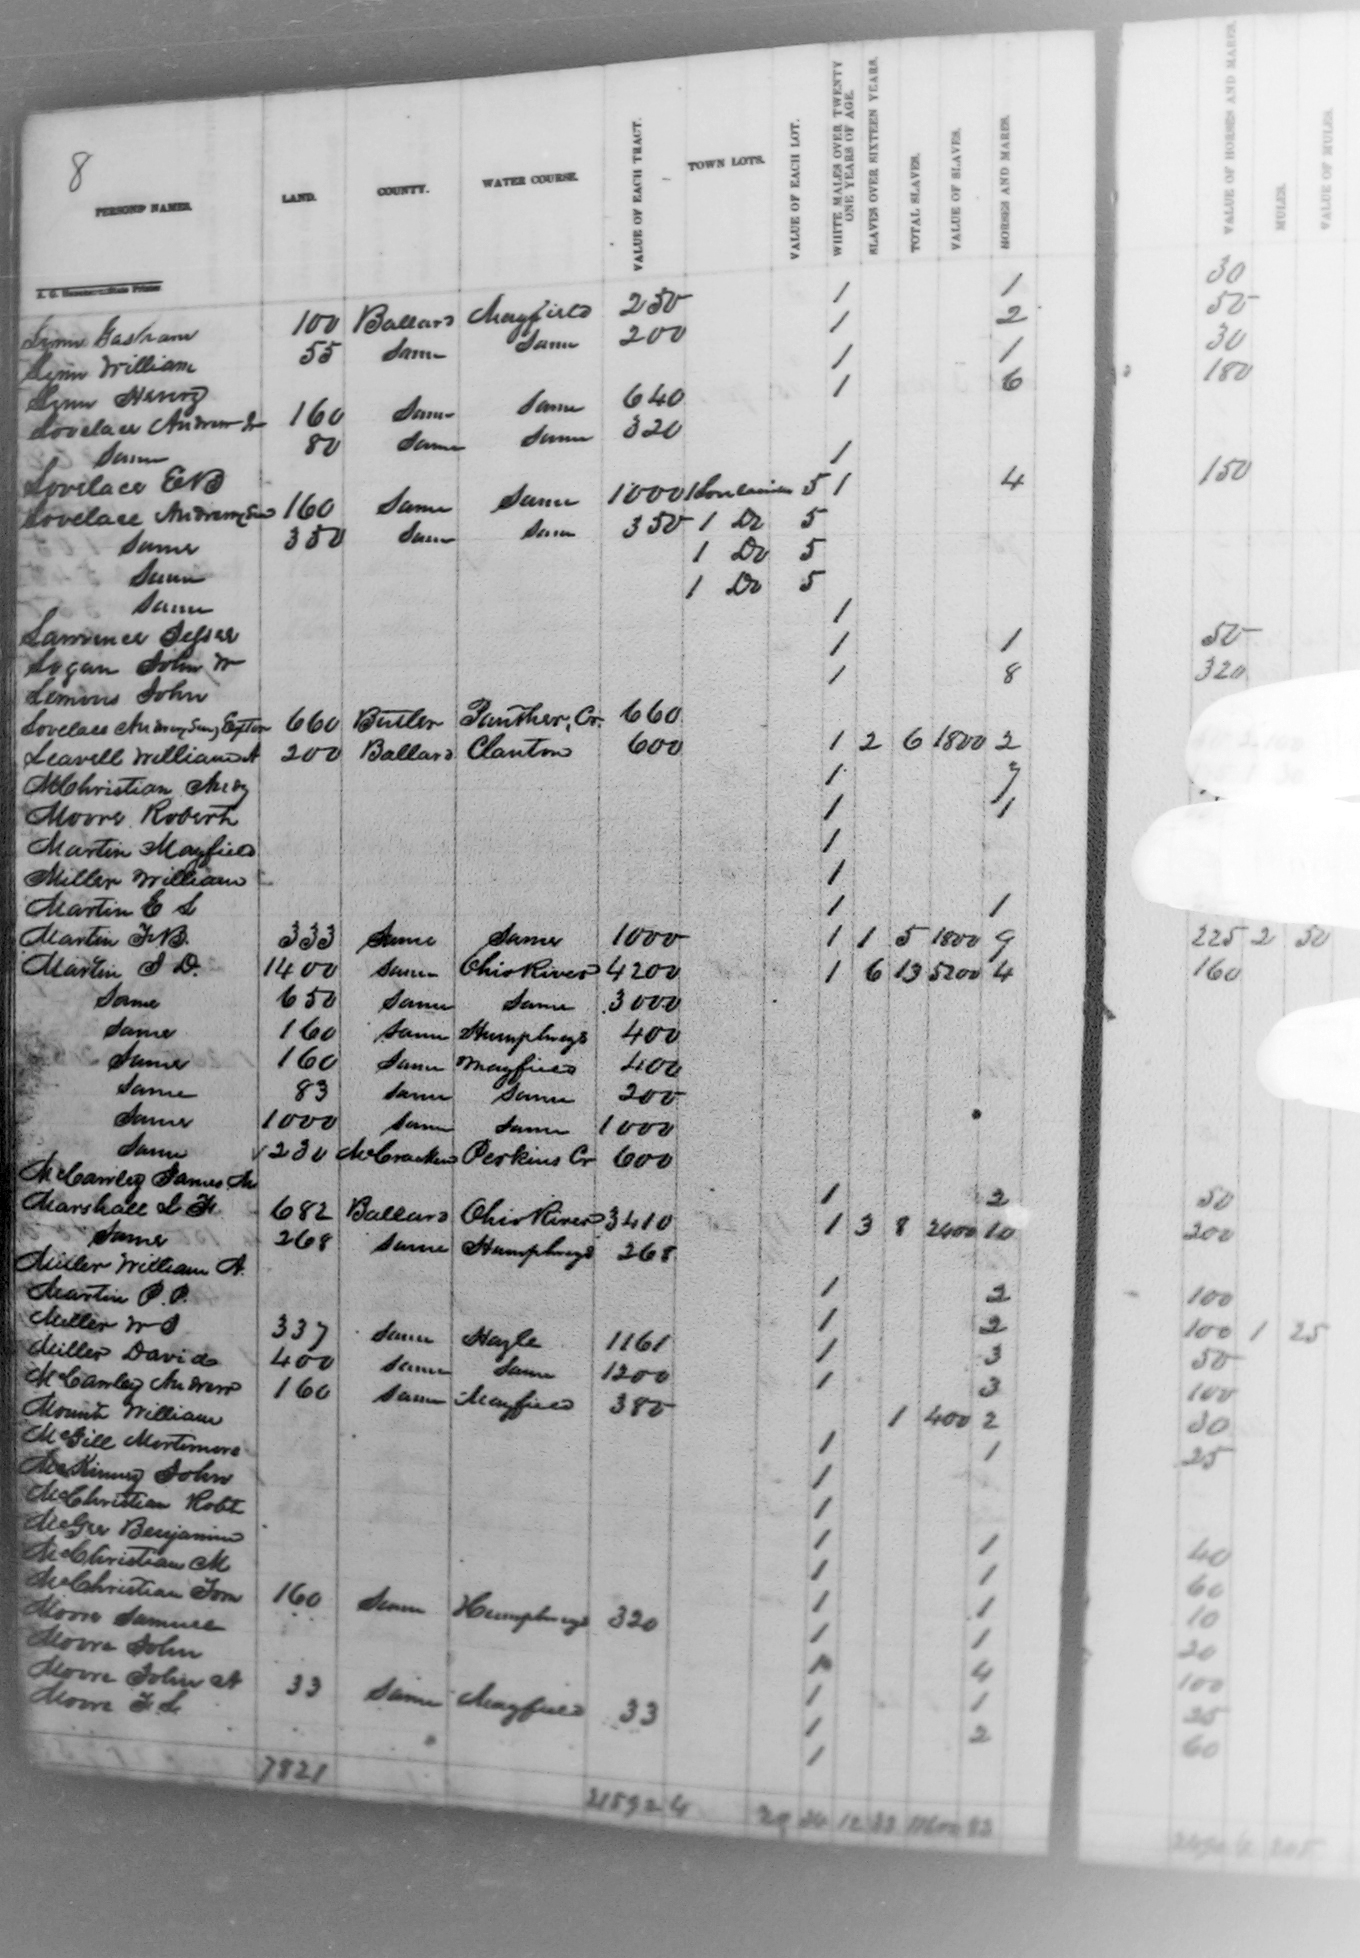 8
PERSONS' NAMES. LAND. COUNTY. WATER COURSE. VALUE OF EACH TRACT. TOWN LOTS. VALUE OF EACH LOT. WHITE MALES OVER TWENTY ONE YEARS OF AGE. SLAVES OVER SIXTEEN YEARS. TOTAL SLAVES. VALUE OF SLAVES. HORSES AND MARES. VALUE OF HORSES AND MARES. MULES. VALUE OF MULES.
Lynn 100 Ballard Mayfield 250 1 1 30
Lynn William 55 Same Same 200 1 2 50
Lynn Henry 1 1 30
Lovelace Andrew Jr 160 Same Same 640 1 6 180
Same 80 Same Same 320
Lovelace E B 1
Lovelace Andrew Sen 160 Same Same 1000 1 5 1 4 150
Same 350 Same Same 350 1 Do 5
Same 1 Do 5
Same 1 Do 5
Lawrence Jesse 1
Logan John W 1 1 50
Lemons John 1 8 320
Lovelace Andrew Sen 660 Butler Panther Cr. 660
Leavell William A 200 Ballard Clanton 600 1 2 6 1800 2
McChristian Andy 1 7
Moore Robert 1 1
Martin Mayfield 1
Miller William 1
Martin E L 1 1
Martin F B. 333 Same Same 1000 1 1 5 1800 9 225 2 50
Martin J D. 1400 Same Ohio River 4200 1 6 13 5200 4 160
Same 650 Same Same 3000
Same 160 Same Humphreys 400
Same 160 Same Mayfield 400
Same 83 Same Same 200
Same 1000 Same Same 1000
Same 230 McCracken Perkins Cr 600
McCawley James M 1 2 50
Marshall L F 682 Ballard Ohio River 3410 1 3 8 2400 10 200
Same 268 Same Humphreys 268
Miller William A. 1 2 100
Martin P. P. 1 2 100 1 25
Miller W J 337 Same Hazle 1161 1 3 50
Miller David 400 Same Same 1200 1 3 100
McCawley Andrew 160 Same Mayfield 380 1 400 2 30
Mount William 1 1 25
McGill Mortimore 1
McKinney John 1
McChristian Robt 1 1 40
McGee Benjamin 1 1 60
McChristian M 1 1 10
McChristian Tom 160 Same Humphreys 320 1 1 20
Moore Samuel 1 4 100
Moore John 1 1 25
Moore John A 33 Same Mayfield 33 1 2 60
Moore F. L. 1
7821 12 33 11600 83